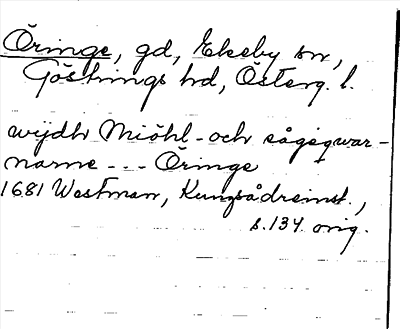 Öringe, gd, Ekeby sn,
Göstrings hd, Österg. l.
wijdh Miöhl- och sågeqwar-
narne --- Öringe
1681 Westman, Kungsådreinst.,
s. 134 orig.